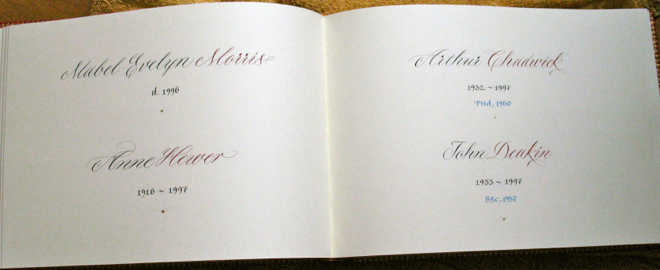 Mabel Evelyn Morris
d. 1996
Anne Hewer
1916 ~ 1997
Arthur Chadwick
1932 ~ 1997
PhD, 1960
John Deakin
1933 ~ 1997
BSc, 1957